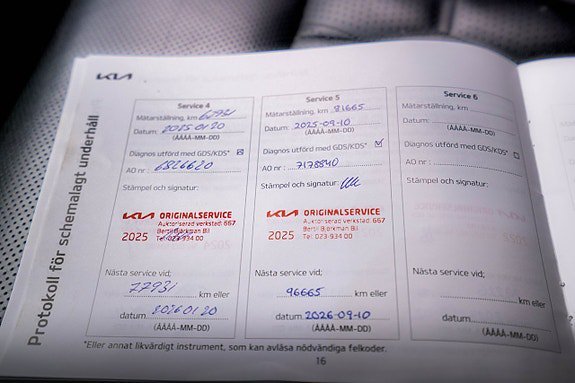 KIA
Protokoll för schemalagt underhåll
Service 4
Mätarställning, km 62931
Datum: 2025 01 20
(ÅÅÅÅ-MM-DD)
Diagnos utförd med GDS/KDS*
AO nr : 6826620
Stämpel och signatur:
KIA ORIGINALSERVICE
Auktoriserad verkstad: 667
Bertil Björkman Bil
2025 Tel: 023-934 00
Nästa service vid;
77931 km eller
datum 2026 01 20
(ÅÅÅÅ-MM-DD)
Service 5
Mätarställning, km 81665
Datum: 2025-09-10
(ÅÅÅÅ-MM-DD)
Diagnos utförd med GDS/KDS*
AO nr : 7178840
Stämpel och signatur:
KIA ORIGINALSERVICE
Auktoriserad verkstad: 667
Bertil Björkman Bil
2025 Tel: 023-934 00
Nästa service vid;
96665 km eller
datum 2026-09-10
(ÅÅÅÅ-MM-DD)
Service 6
Mätarställning, km
Datum:
(ÅÅÅÅ-MM-DD)
Diagnos utförd med GDS/KDS*
AO nr :
Stämpel och signatur:
Nästa service vid;
km eller
datum
(ÅÅÅÅ-MM-DD)
*Eller annat likvärdigt instrument, som kan avläsa nödvändiga felkoder.
16